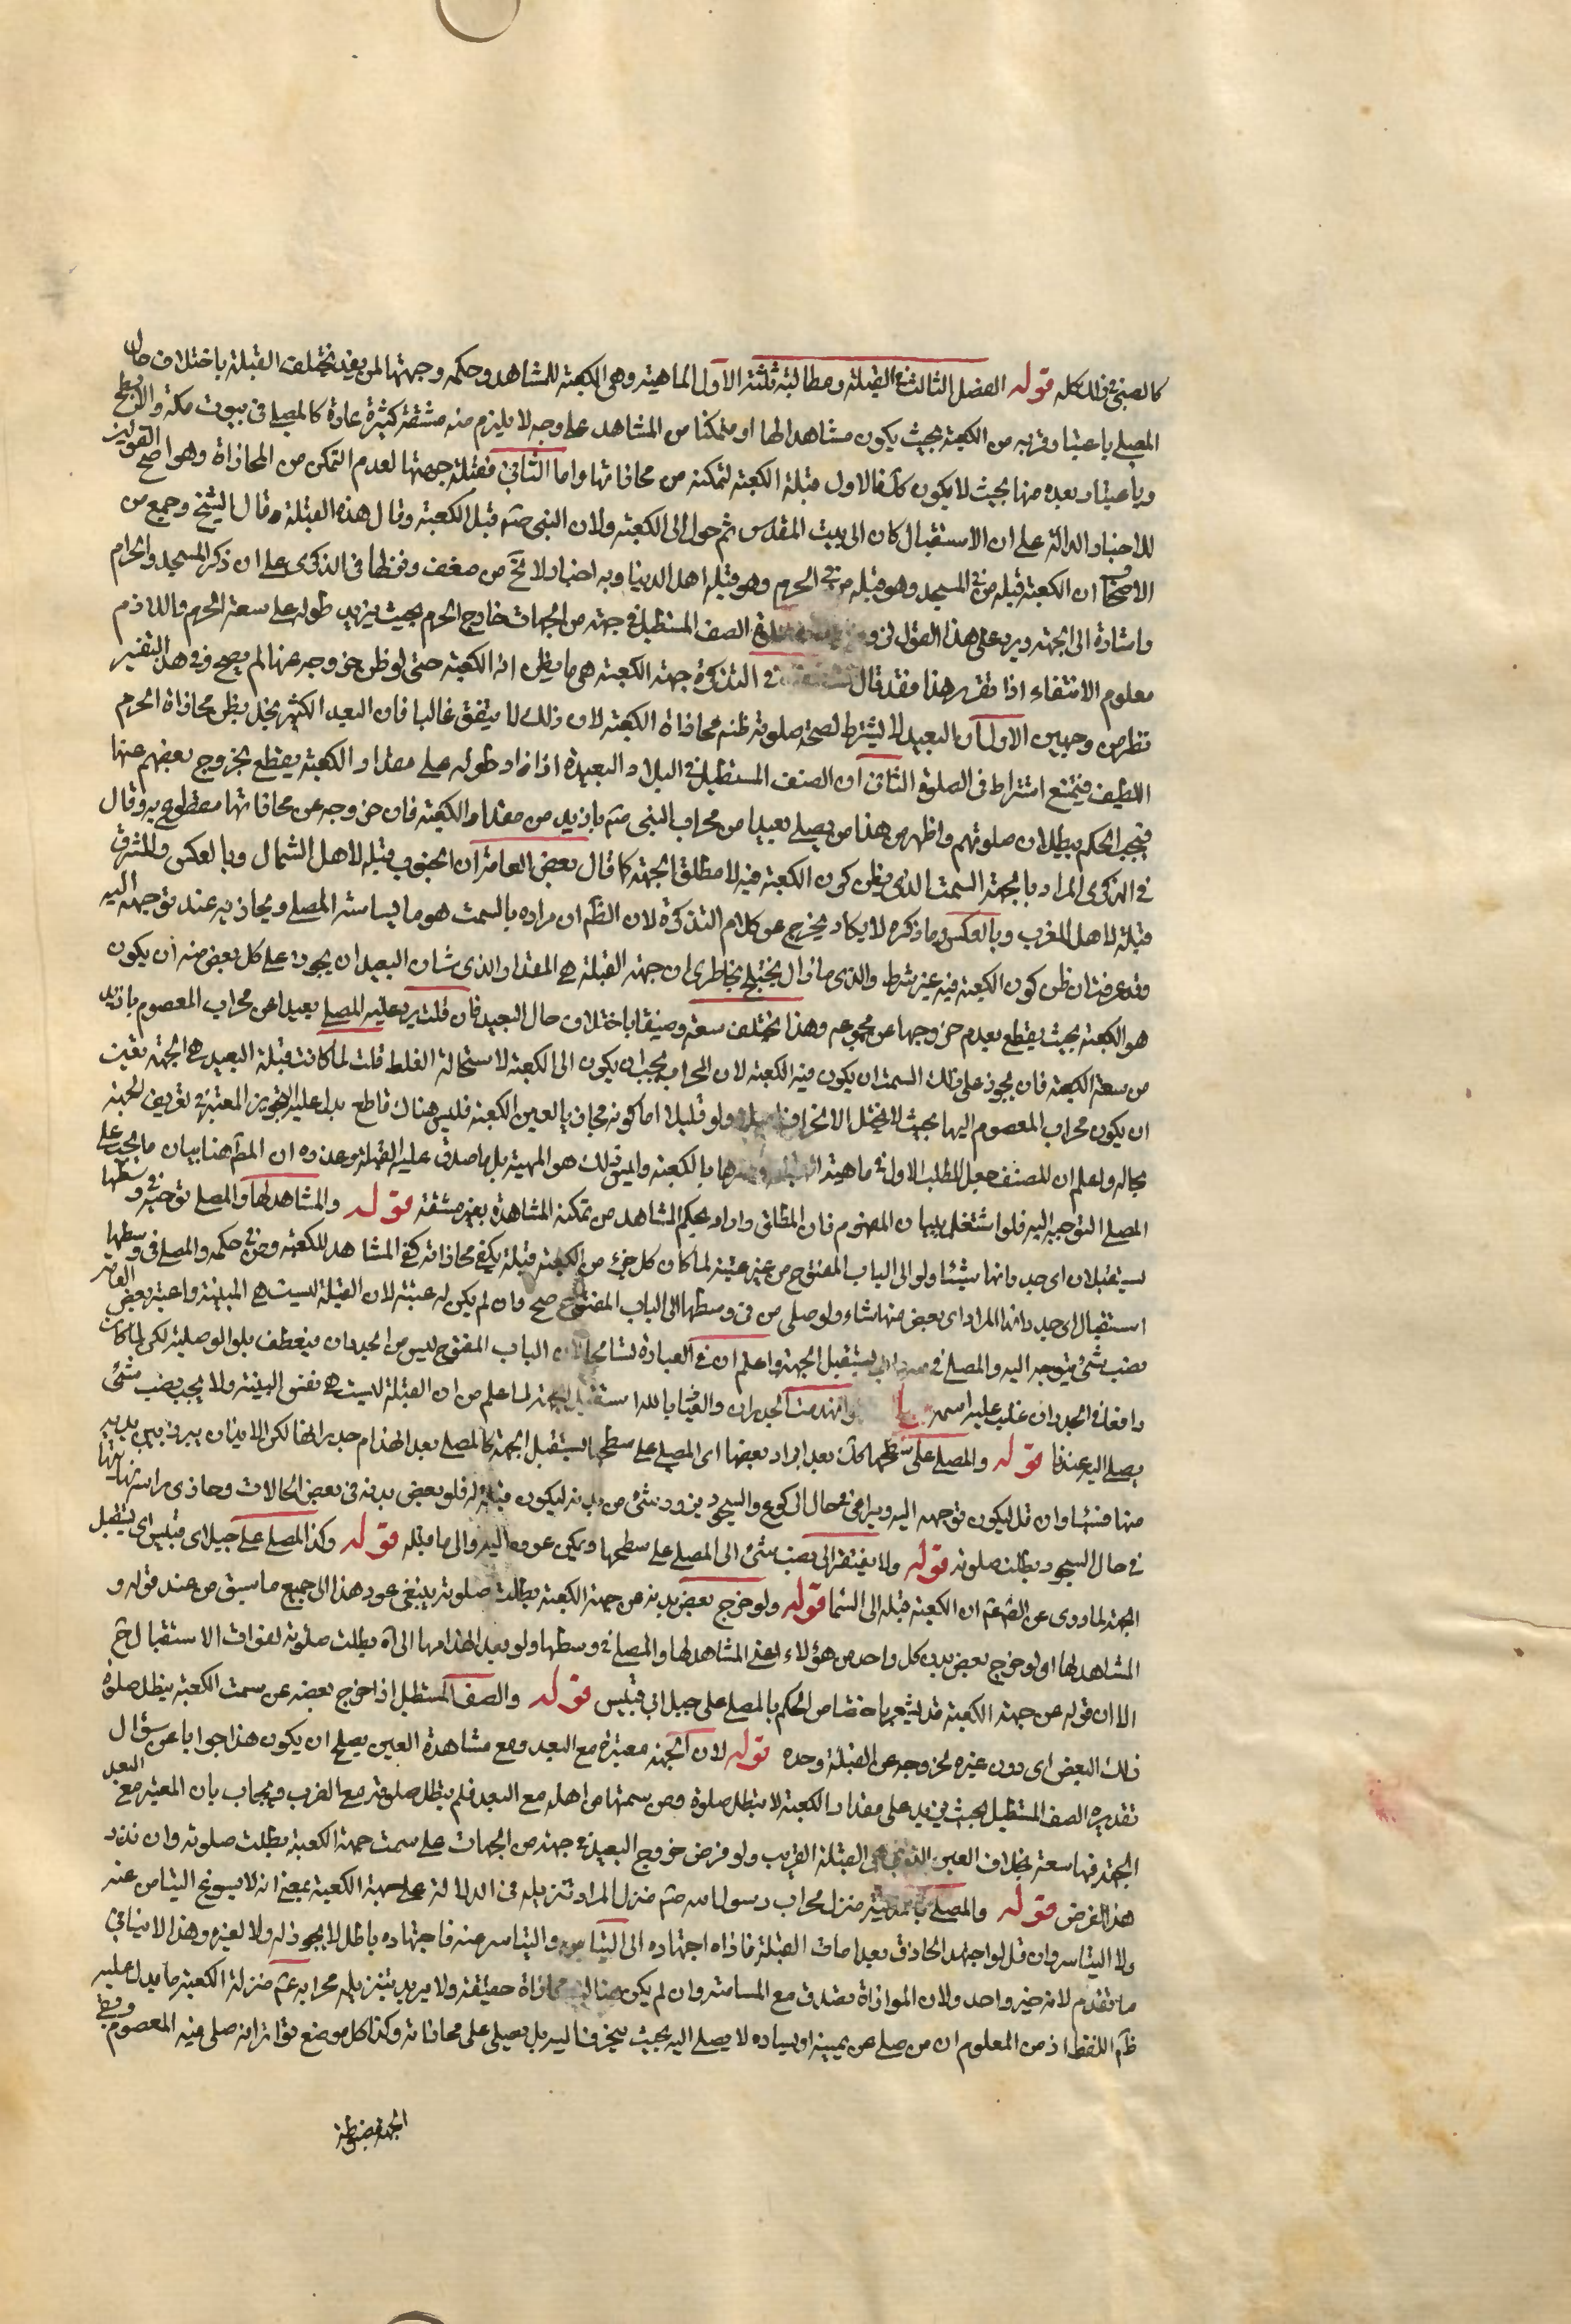 كالصبي في ذلك كله قوله الفصل الثالث في القبلة ومطالبه ثلثة الاول الماهية وهي الكعبة للمشاهد وحكمه وجهتها لمن بعد يختلف القبلة باختلاف حال
المصلي باعتبار قربه من الكعبة بحيث يكون مشاهدا لها او متمكنا من المشاهد على وجه لا يلزم منه مشقة كثيرة عادة كالمصلي في بيوت مكة والابطح
وباعتبار بعده منها بحيث لا يكون كك فالاول قبلة الكعبة لتمكنه من محاذاتها واما الثاني فقبلة جهتها لعدم التمكن من المحاذاة وهو اصح القولين
للاخبار الدالة على ان الاستقبال كان الى بيت المقدس ثم حول الى الكعبة ولان النبي صم قبل الكعبة وقال هذه القبلة وقال الشيخ وجمع من
الاصحاب ان الكعبة قبلة من في المسجد وهو قبلة من في الحرم وهو قبلة اهل الدنيا وبه اخبار لا تخ من ضعف وفي الذكرى على ان ذكر المسجد والحرم
واشارة الى الجهة ويرد على هذا القول الصف المستطيل في جهة من الجهات خارج الحرم بحيث يزيد طوله على سعة الحرم واللازم
معلوم الانتفاء اذا تقرر هذا فقد قال في التذكرة جهة الكعبة هي ما يظن انه الكعبة حتى لو ظن خروجه عنها لم يصح وفي هذا التفسير
نظر من وجهين الاول ان البعيد لا يشترط لصحة صلوته ظنه محاذاة الكعبة لان ذلك لا يتفق غالبا فان البعد الكثير يخل بظن محاذاة الجرم
اللطيف فيمتنع اشتراطه في الصلوة الثاني ان الصف المستطيل في البلاد البعيدة اذا زاد طوله على مقدار الكعبة يقطع بخروج بعضهم عنها
فيجب الحكم ببطلان صلوتهم واظهر من هذا من يصلي بعيدا من محراب النبي صم بازيد من مقدار الكعبة فان خروجه عن محاذاتها مقطوع به وقال
في الذكرى المراد بالجهة السمت الذي يظن كون الكعبة فيه لا مطلق الجهة كما قال بعض العامة ان الجنوب قبلة لاهل الشمال وبالعكس والمشرق
قبلة لاهل المغرب وبالعكس وما ذكره لا يكاد يخرج عن كلام التذكرة لان الظم ان مراده بالسمت هو ما يسامته المصلي ويحاذيه عند توجهه اليه
وقد عرفت ان ظن كون الكعبة فيه غير شرط والذي ما زال يختلج بخاطري ان جهة القبلة هي المقدار الذي شان البعيد ان يجوز على كل بعض منه ان يكون
هو الكعبة بحيث يقطع بعدم خروجها عن مجموعه وهذا يختلف سعة وضيقا باختلاف حال البعيد فان قلت يرد عليه المصلي بعيدا عن محراب المعصوم بازيد
من سعة الكعبة فان يجوز على ذلك السمت ان يكون فيه الكعبة لان المحراب يجب ان يكون الى الكعبة لاستحالة الغلط قلت لما كانت قبلة البعيد هي الجهة تعين
ان يكون محراب المعصوم اليها بحيث لا يحتمل الانحراف اصلا ولو قليلا اما كونه محاذيا لعين الكعبة فليس هناك قاطع يدل عليه فالتجويز المعتبر في تعريف الجهة
بحاله واعلم ان المصنف جعل المطلب الاول في ماهية القبلة بالكعبة وليس ذلك هو المهية بل ما صدق عليه القبلة وعذره ان المهم هنا بيان ما يجب على
المصلي التوجه اليه فلو اشتغل ببيان المفهوم فات المطلق واراد بحكم المشاهد من تمكنه المشاهدة بغير مشقة قوله والمشاهد لها والمصلي في وسطها
يستقبلان اي جدرانها شيئا ولو الى الباب المفتوح من غير عتبة لما كان كل جزء من الكعبة قبلة يكفي محاذاته كفى المشاهد للكعبة ومن في حكمه والمصلي في وسطها
استقبال اي جدرانها المراد اي بعض منها شاء ولو صلى من في وسطها الى الباب المفتوح صح وان لم يكن له عتبة لان القبلة ليست هي البنية واعتبر بعض العامة
نصب شيء يتوجه اليه والمصلي في يستقبل الجهة واعلم ان في العبارة تسامحا لان الباب المفتوح ليس من الجدران فيعطف بلو الوصلية لكن لما كان
واقعا في الجدران غلب عليه اسمه ولو انهدمت الجدران والعياذ بالله استقبل الجهة لما علم من ان القبلة ليست هي نفس البنية ولا يجب نصب شيء
يصلي اليه عندنا قوله والمصلي على سطحها كك بعد ابراز بعضها اي المصلي على سطحها يستقبل الجهة كالمصلي بعد انهدام جدرانها لكن لا بد ان يبرز بين يديه
منها شيئا وان قل ليكون توجهه اليه ويراعى في حال الركوع والسجود بروز شيء من بدنه ليكون قبلة له فلو بعض بدنه في بعض الحالات وحاذى راسه نهايتها
في حال السجود بطلت صلوته قوله ولا يفتقر الى نصب شيء الى المصلي على سطحها ويمكن عوده اليه والى ما قبله قوله وكذا المصلي على جبل ابي قبيس اي يستقبل
الجهة لما روي عن الصم عم ان الكعبة قبلة الى السماء قوله ولو خرج بعض بدنه عن جهة الكعبة بطلت صلوته ينبغي عود هذا الى جميع ما سبق من عند قوله و
المشاهد لها اي لو خرج بعض بدن كل واحد من هؤلاء اعني المشاهد لها والمصلي في وسطها ولو بعد انهدامها الى آه بطلت صلوته لفوات الاستقبال ح
الا ان قوله عن جهة الكعبة قد يشعر باختصاص الحكم بالمصلي على جبل ابي قبيس قوله والصف المستطيل اذا خرج بعضه عن سمت الكعبة يبطل صلوة
ذلك البعض اي دون غيره لخروجه عن القبلة وحده قوله لان الجهة معتبرة مع البعد ومع مشاهدة العين يصلح ان يكون هذا جوابا عن سؤال
تقديره الصف المستطيل بحيث يزيد على مقدار الكعبة لا يبطل صلوة من سمتها من اهله مع البعد فلم يبطل صلوته مع القرب ويجاب بان المعتبر مع البعد
الجهة فيها سعة بخلاف العين التي هي القبلة القريب ولو فرض خروج البعيد في جهة من الجهات على سمت جهة الكعبة بطلت صلوته وان ندر
هذا الفرض قوله والمصلي بالمدينة منزل محراب رسول الله صم منزل المراد تنزيله في الدلالة على جهة الكعبة بمعنى انه لا يسوغ التيامن عنه
ولا التياسر وان قل لو اجتهد الحاذق بعد امارات القبلة فاداه اجتهاده الى التيامن والتياسر منه فاجتهاده باطل لا يجوز له ولا لغيره وهذا لا ينافي
ما تقدم لانه خير واحد ولان الموازاة تصدق مع المسامتة وان لم يكن هناك محاذاة حقيقة ولا يريد بتنزيله محرابه عم منزلة الكعبة ما يدل عليه
ظم اللفظ اذ من المعلوم ان من صلى عن يمينه او يساره لا يصلي اليه بحيث ينحرف اليه بل يصلي على محاذاته وكذا كل موضع تواتر انه صلى فيه المعصوم
الجهة مضبوطة